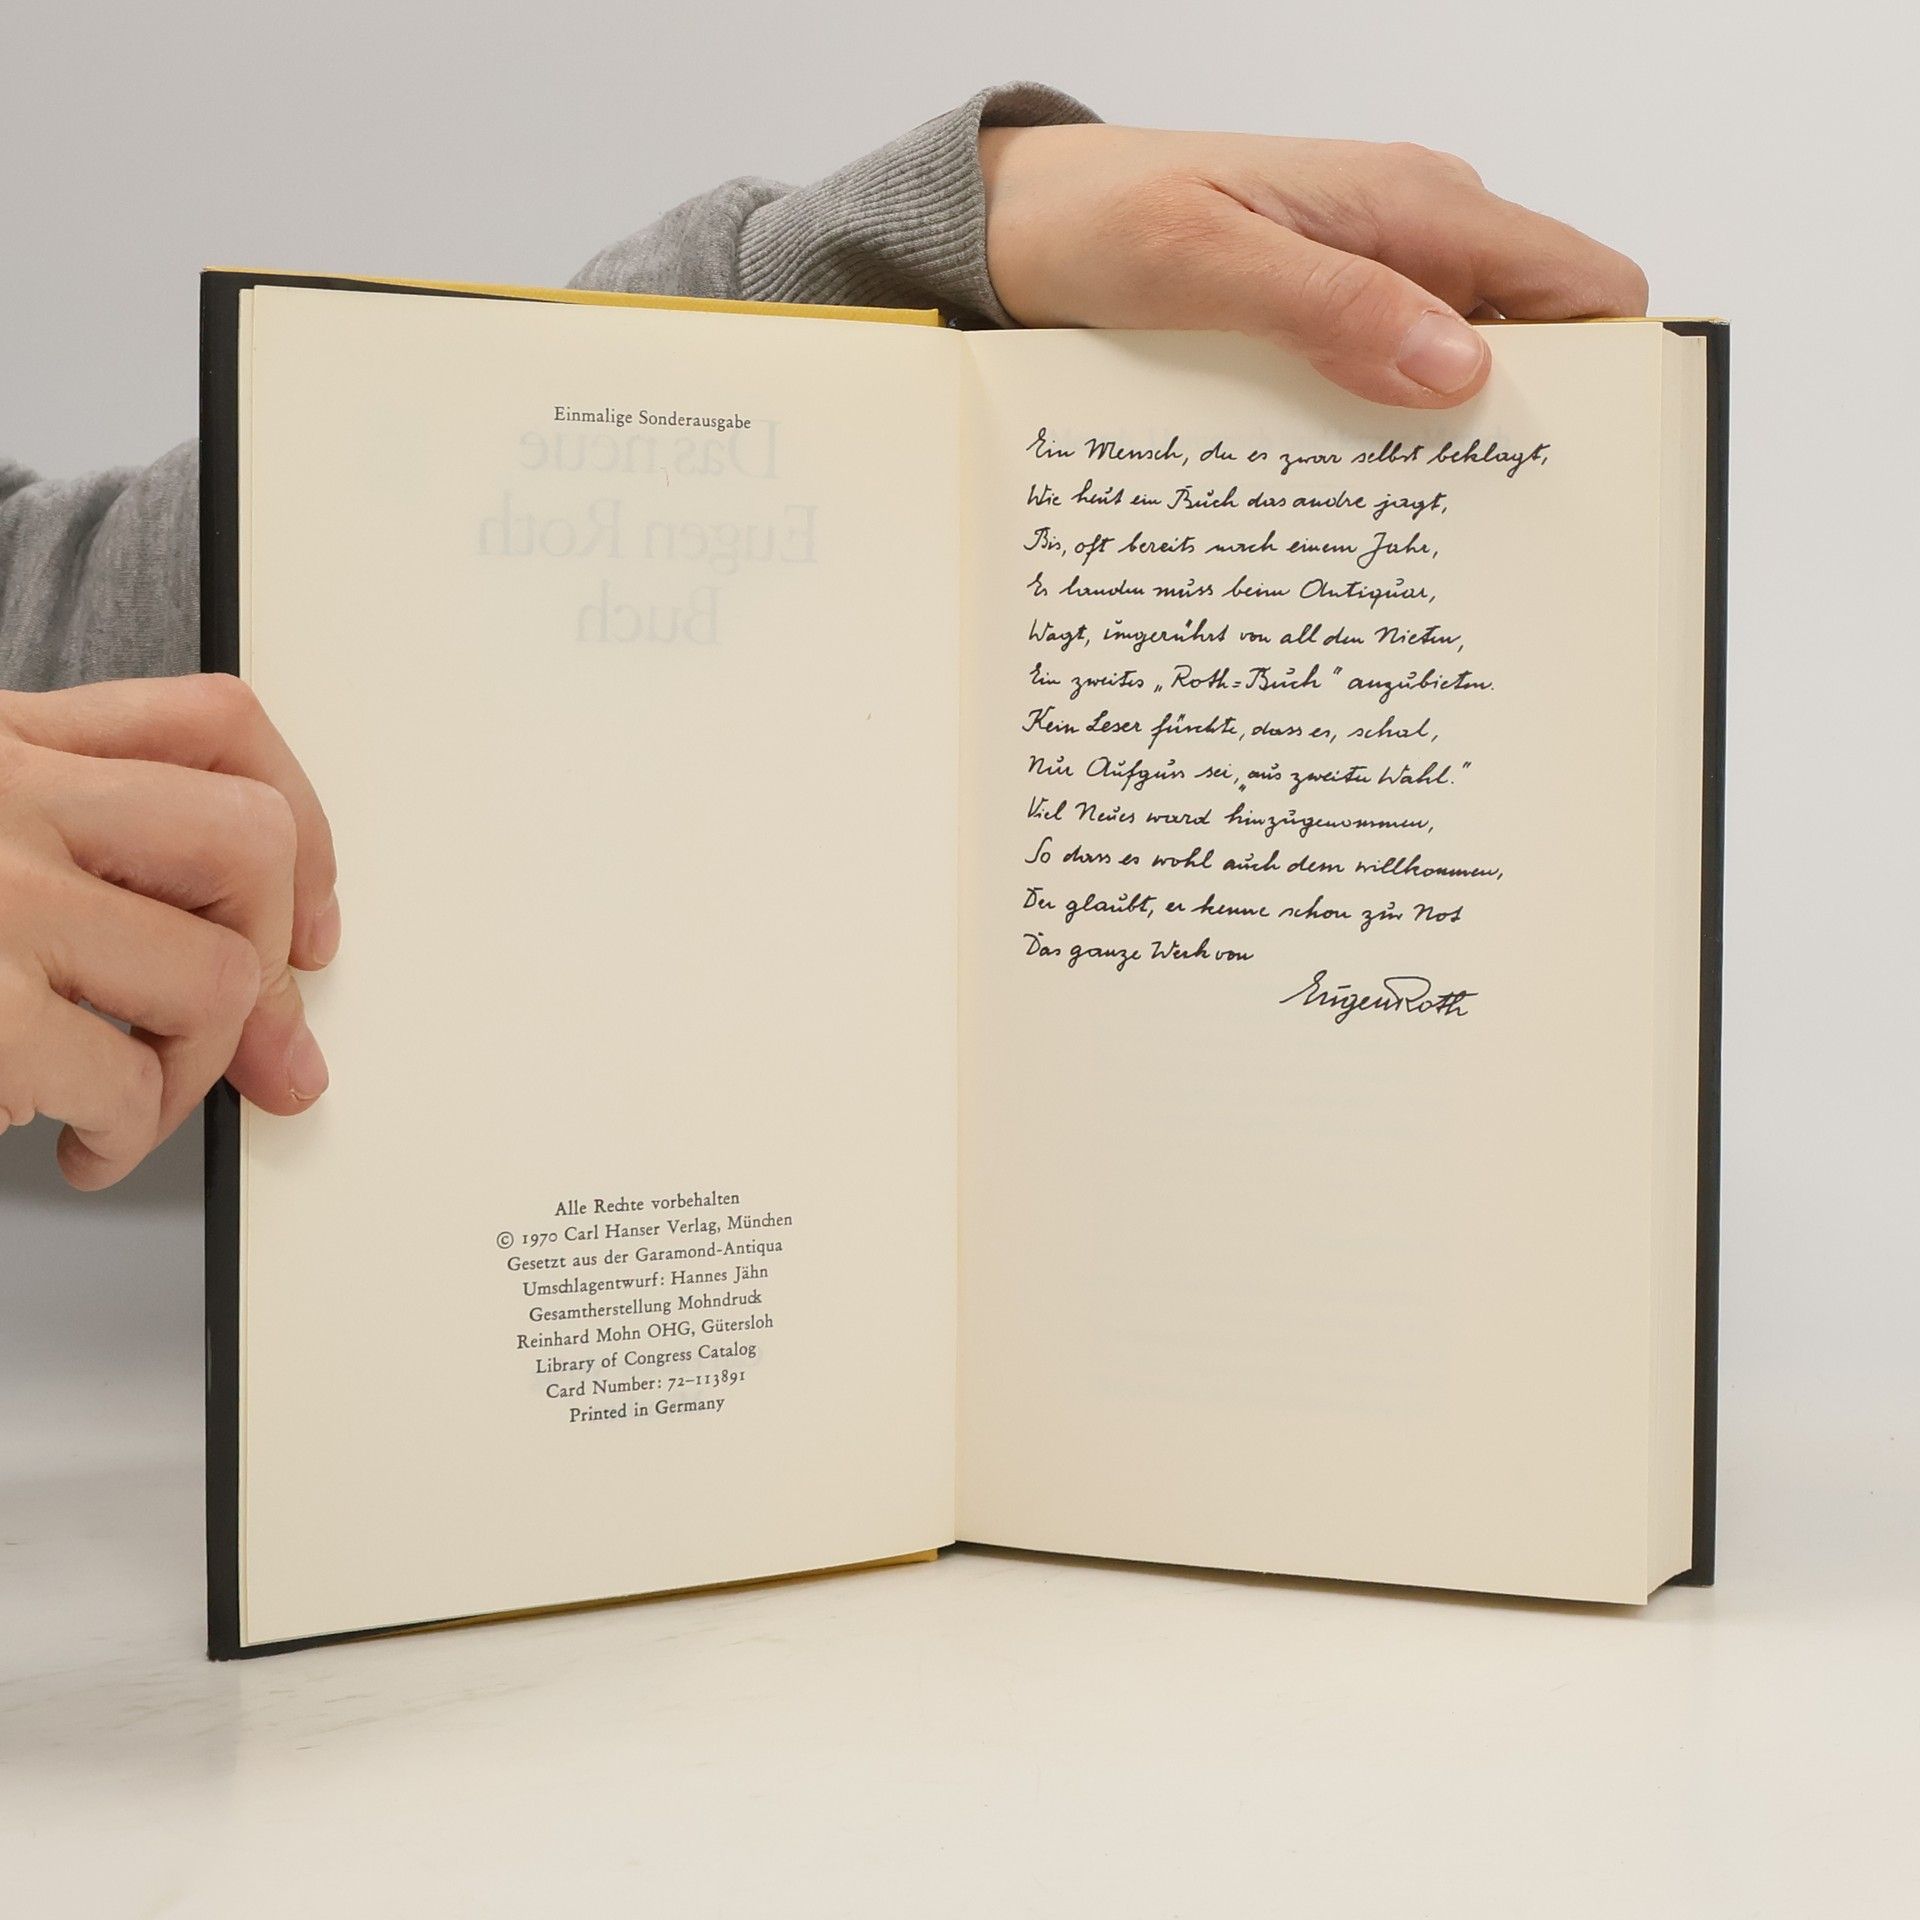 Einmalige Sonderausgabe
Das neue
Eugen Roth
Buch
Alle Rechte vorbehalten
© 1970 Carl Hanser Verlag, München
Gesetzt aus der Garamond-Antiqua
Umschlagentwurf: Hannes Jähn
Gesamtherstellung Mohndruck
Reinhard Mohn OHG, Gütersloh
Library of Congress Catalog
Card Number: 72–113891
Printed in Germany
Ein Mensch, der es zwar selbst beklagt,
Wie heut ein Buch das andre jagt,
Bis, oft bereits nach einem Jahr,
Es landen muss beim Antiquar,
Wagt, ungerührt von all den Nieten,
Ein zweites „Roth=Buch" anzubieten.
Kein Leser fürchte, dass es, schal,
Nur Aufguss sei, „aus zweiter Wahl."
Viel Neues ward hinzugenommen,
So dass es wohl auch dem willkommen,
Der glaubt, er kenne schon zur Not
Das ganze Werk von
Eugen Roth